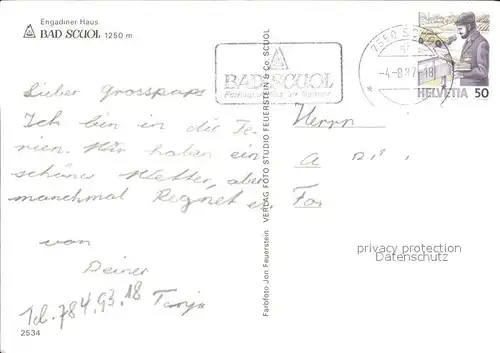 Engadiner Haus
BAD SCUOL 1250 m
Lieber Grosspapi
Ich bin in die Fe-
rien. Wir haben ein
schönes Wetter, aber
manchmal Regnet es.
von
Deiner
Tanja
Tel. 784.93.18
2534
Farbfoto Jon Feuerstein VERLAG FOTO STUDIO FEUERSTEIN & Co SCUOL
BAD SCUOL
7550 SCUOL
HELVETIA 50
Herrn
A
privacy protection
Datenschutz